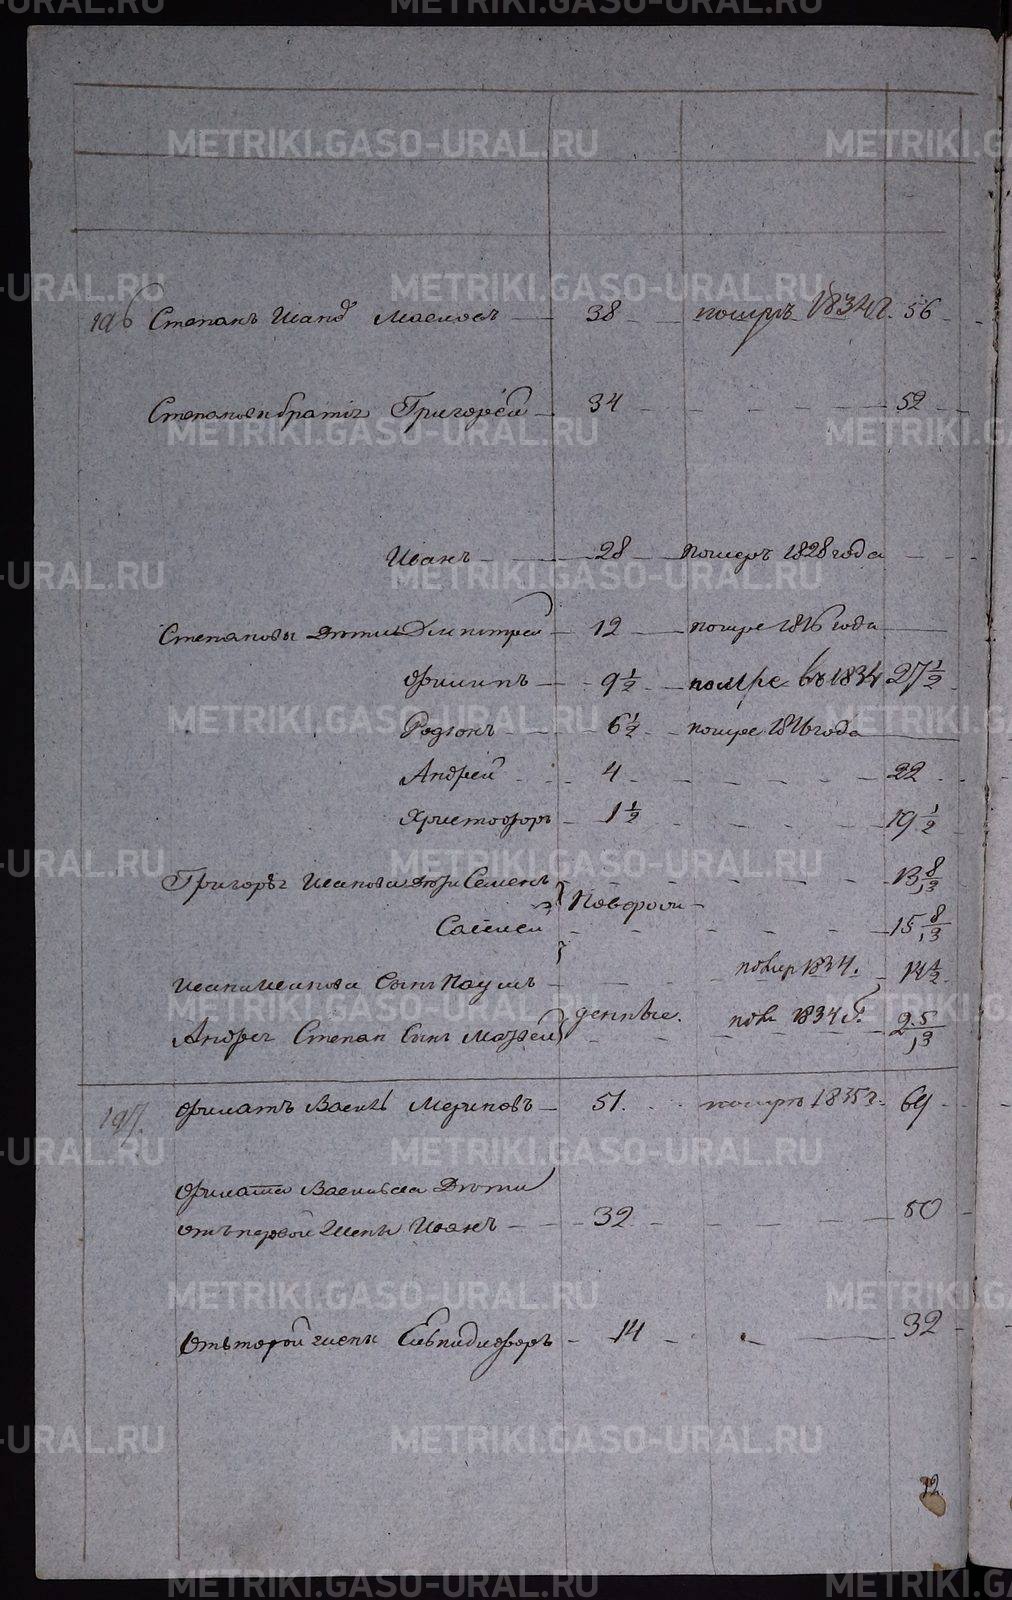 METRIKI.GASO-URAL.RU
196 Степанъ Иван Маслов 38 помръ 1834г. 56
Степановы братья Григорей 34 52
Иванъ 28 померъ 1828 года
Степановы дѣти Дмитрей 12 помре 1816 года
Филипъ 9 1/2 помре въ 1834 27 1/2
Родионъ 6 1/2 помре 1816 года
Андрей 4 22
Христофоръ 1 1/2 19 1/2
Григорья Иванова дѣти Семенъ 13 8/13
Савелей 15 8/13
Новорож
Ивана Иванова сынъ Наумъ помр 1834. 14 1/2
денные.
Андрея Степан сынъ Матвей пом 1834 г. 2 5/13
197. Филатъ Васил Мериновъ 51. помръ 1835г. 69
Филата Васильева дѣти
отъ первой жены Иванъ 32 50
отъ второй жены Елпидифоръ 14 32
12